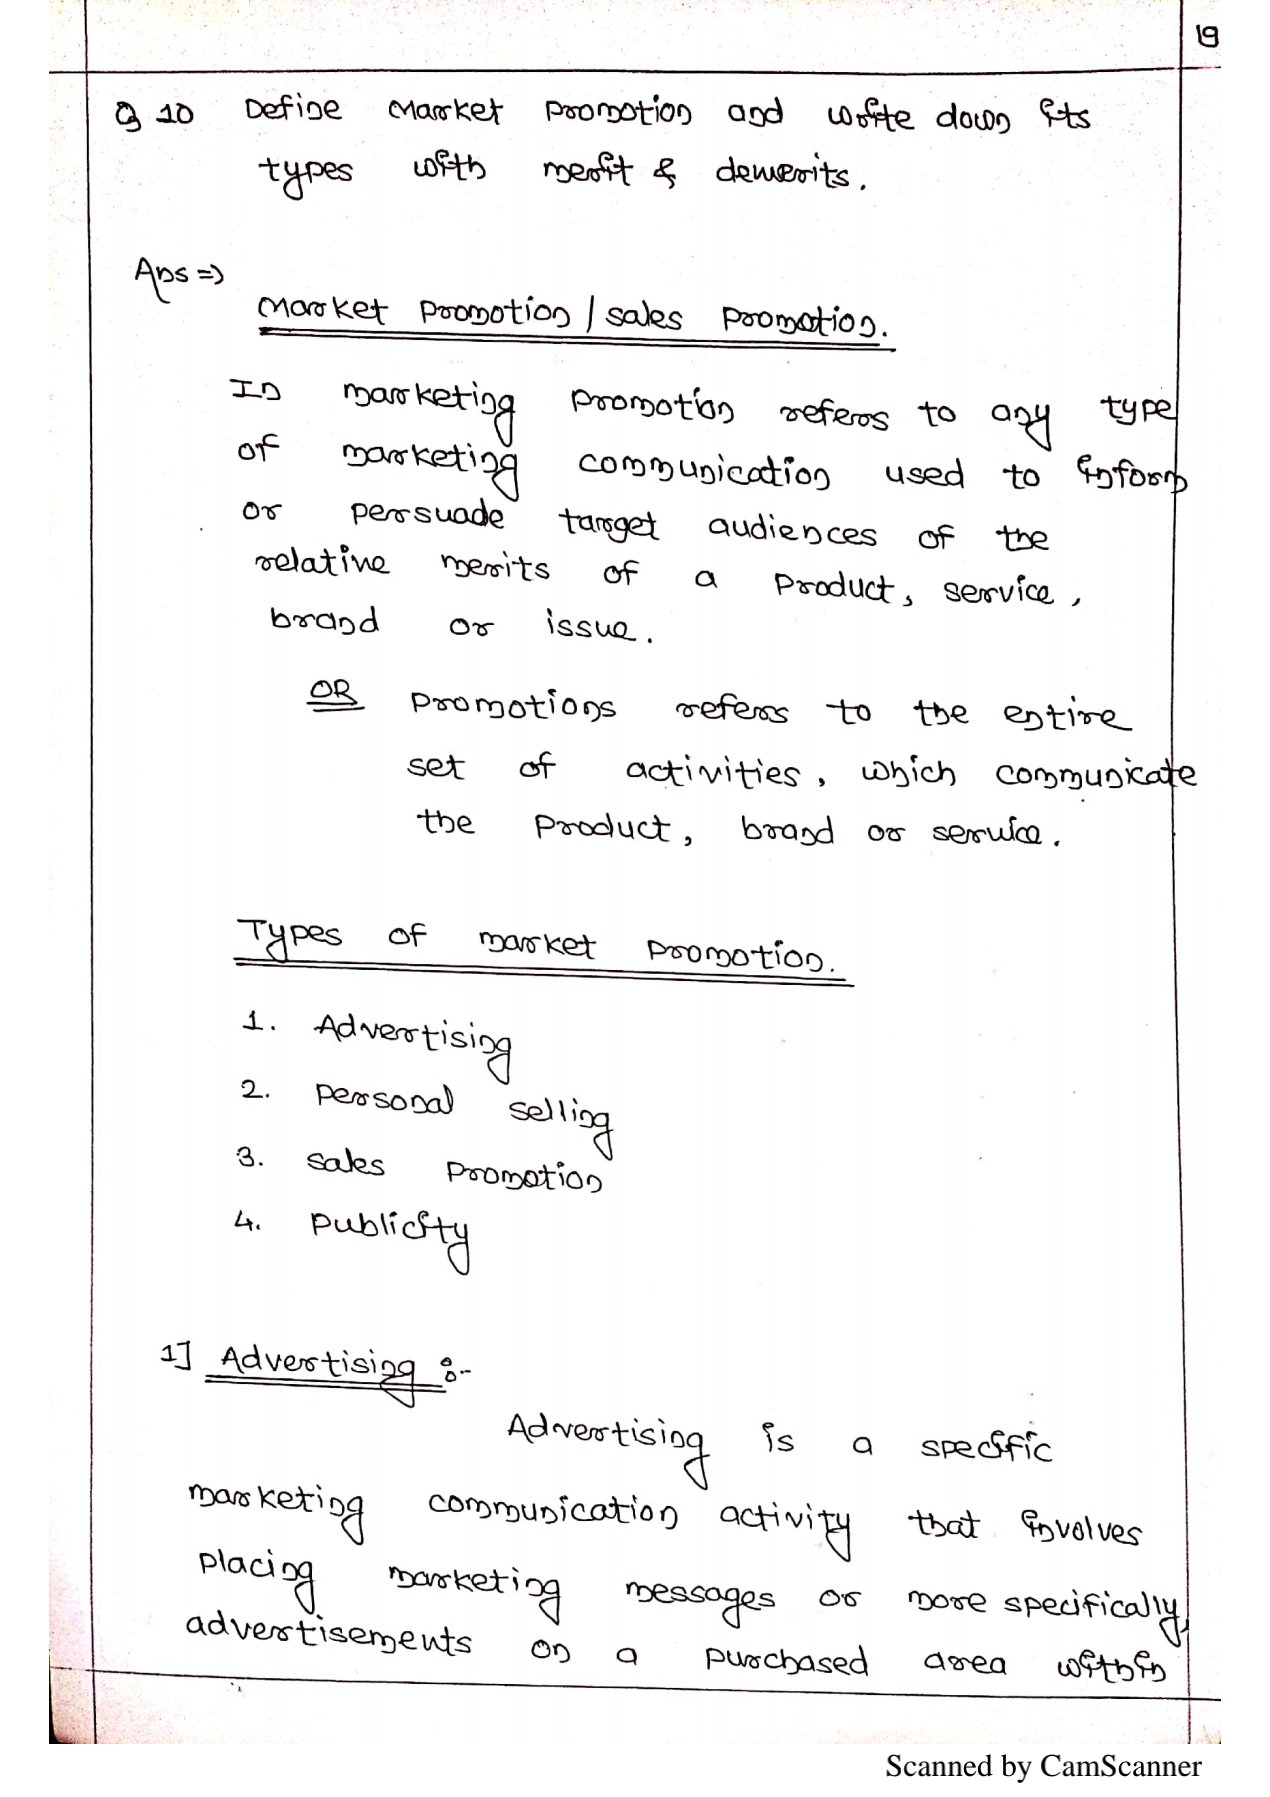 19
Q 10 Define Market Promotion and write down its
types with merit & demerits.
Ans =>
Market Promotion / sales Promotion.
In marketing promotion refers to any type
of marketing communication used to inform
or persuade target audiences of the
relative merits of a product, service,
brand or issue.
OR Promotions refers to the entire
set of activities, which communicate
the product, brand or service.
Types of market promotion.
1. Advertising
2. Personal selling
3. sales promotion
4. Publicity
1] Advertising :-
Advertising is a specific
marketing communication activity that involves
placing marketing messages or more specifically,
advertisements on a purchased area within
Scanned by CamScanner